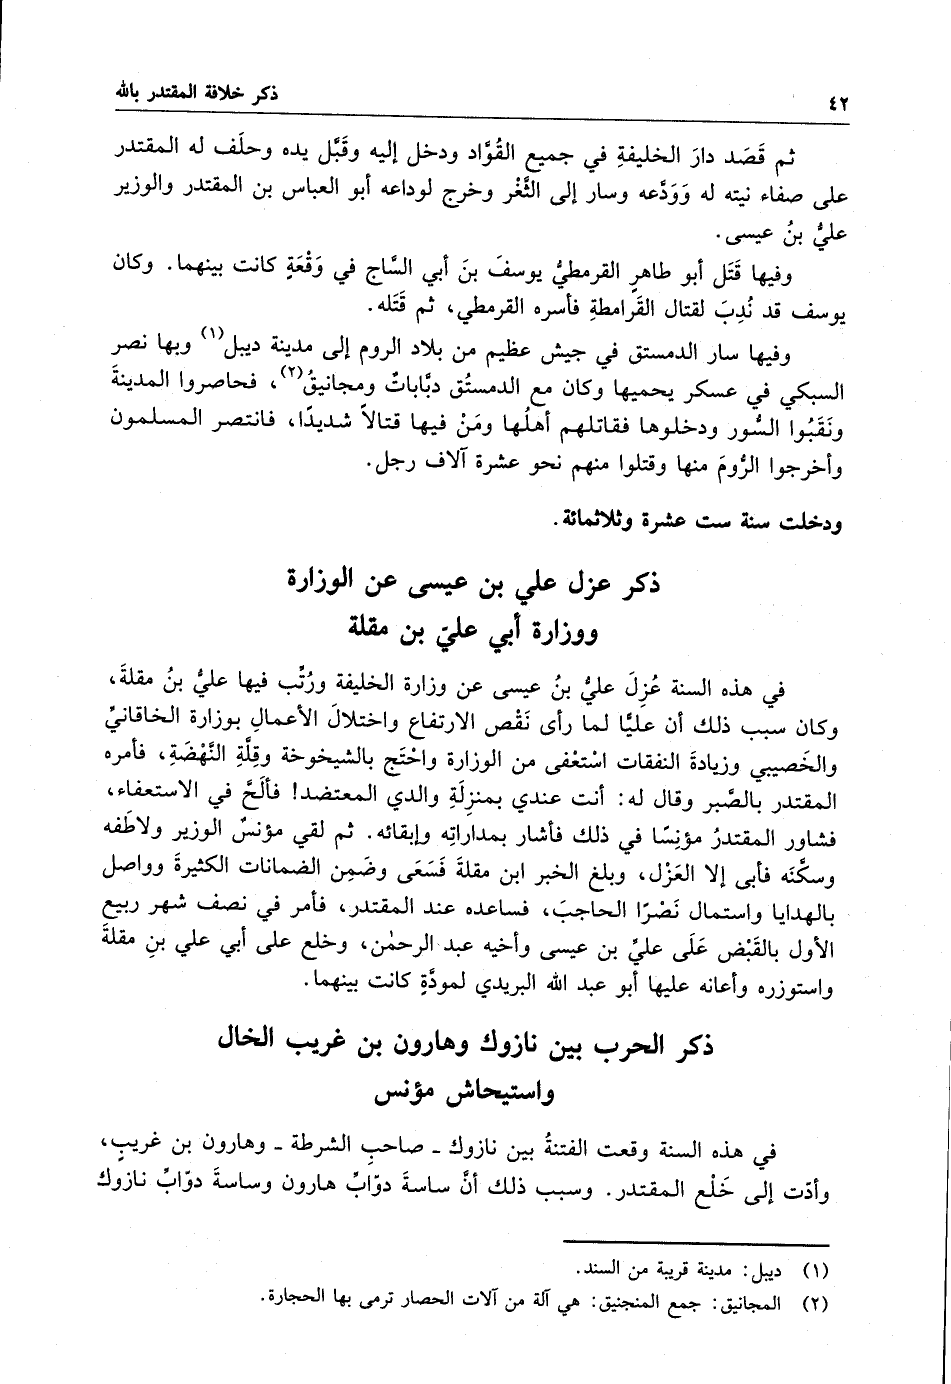 ٤٢
ذكر خلافة المقتدر بالله
ثم قَصَد دارَ الخليفةِ في جميع القُوَّاد ودخل إليه وقَبَّل يده وحلَف له المقتدر
على صفاء نيته له وَوَدَّعه وسار إلى الثَّغْر وخرج لوداعه أبو العباس بن المقتدر والوزير
عليُّ بنُ عيسى.
وفيها قَتَل أبو طاهرٍ القرمطيُّ يوسفَ بنَ أبي السَّاج في وَقْعَةٍ كانت بينهما. وكان
يوسف قد نُدِبَ لقتال القَرامطةِ فأسره القرمطي، ثم قَتَله.
وفيها سار الدمستق في جيش عظيم من بلاد الروم إلى مدينة ديبل(١) وبها نصر
السبكي في عسكر يحميها وكان مع الدمستُق دبَّاباتٌ ومجانيقُ(٢)، فحاصروا المدينةَ
ونَقَبُوا السُّور ودخلوها فقاتلهم أهلُها ومَنْ فيها قتالاً شديدًا، فانتصر المسلمون
وأخرجوا الرُّومَ منها وقتلوا منهم نحو عشرة آلاف رجل.
ودخلت سنة ست عشرة وثلاثمائة.
ذكر عزل علي بن عيسى عن الوزارة
ووزارة أبي عليّ بن مقلة
في هذه السنة عُزِلَ عليُّ بنُ عيسى عن وزارة الخليفة ورُتِّب فيها عليُّ بنُ مقلةَ،
وكان سبب ذلك أن عليًّا لما رأى نَقْص الارتفاع واختلالَ الأعمالِ بوزارة الخاقانيِّ
والخَصيبي وزيادةَ النفقات اسْتَعْفى من الوزارة واحْتَج بالشيخوخة وقِلَّةِ النَّهْضَةِ، فأمره
المقتدر بالصَّبر وقال له: أنت عندي بمنزلَةِ والدي المعتضد! فألَحَّ في الاستعفاء،
فشاور المقتدرُ مؤنِسًا في ذلك فأشار بمداراتِه وإبقائه. ثم لقي مؤنسٌ الوزير ولاطَفه
وسكَّنَه فأبى إلا العَزْل، وبلغ الخبر ابن مقلةَ فَسَعَى وضَمِن الضمانات الكثيرةَ وواصل
بالهدايا واستمال نَصْرًا الحاجبَ، فساعده عند المقتدر، فأمر في نصف شهر ربيع
الأول بالقَبْض عَلَى عليِّ بن عيسى وأخيه عبد الرحمٰن، وخلع على أبي علي بنِ مقلةَ
واستوزره وأعانه عليها أبو عبد الله البريدي لمودَّةٍ كانت بينهما.
ذكر الحرب بين نازوك وهارون بن غريب الخال
واستيحاش مؤنس
في هذه السنة وقعت الفتنةُ بين نازوك ـ صاحبِ الشرطة ـ وهارون بن غريبٍ،
وأدّت إلى خَلْع المقتدر. وسبب ذلك أنَّ ساسةَ دوّابِّ هارون وساسةَ دوّابِّ نازوك
(١) ديبل: مدينة قريبة من السند.
(٢) المجانيق: جمع المنجنيق: هي آلة من آلات الحصار ترمى بها الحجارة.